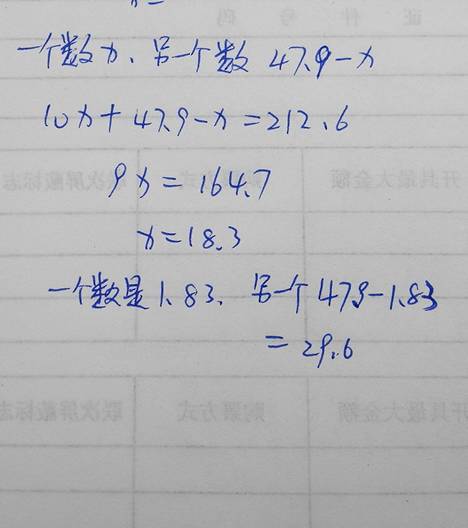 一个数x、另一个数 47.9-x
10x+47.9-x=212.6
9x=164.7
x=18.3
一个数是1.83、另一个47.9-1.83
=29.6